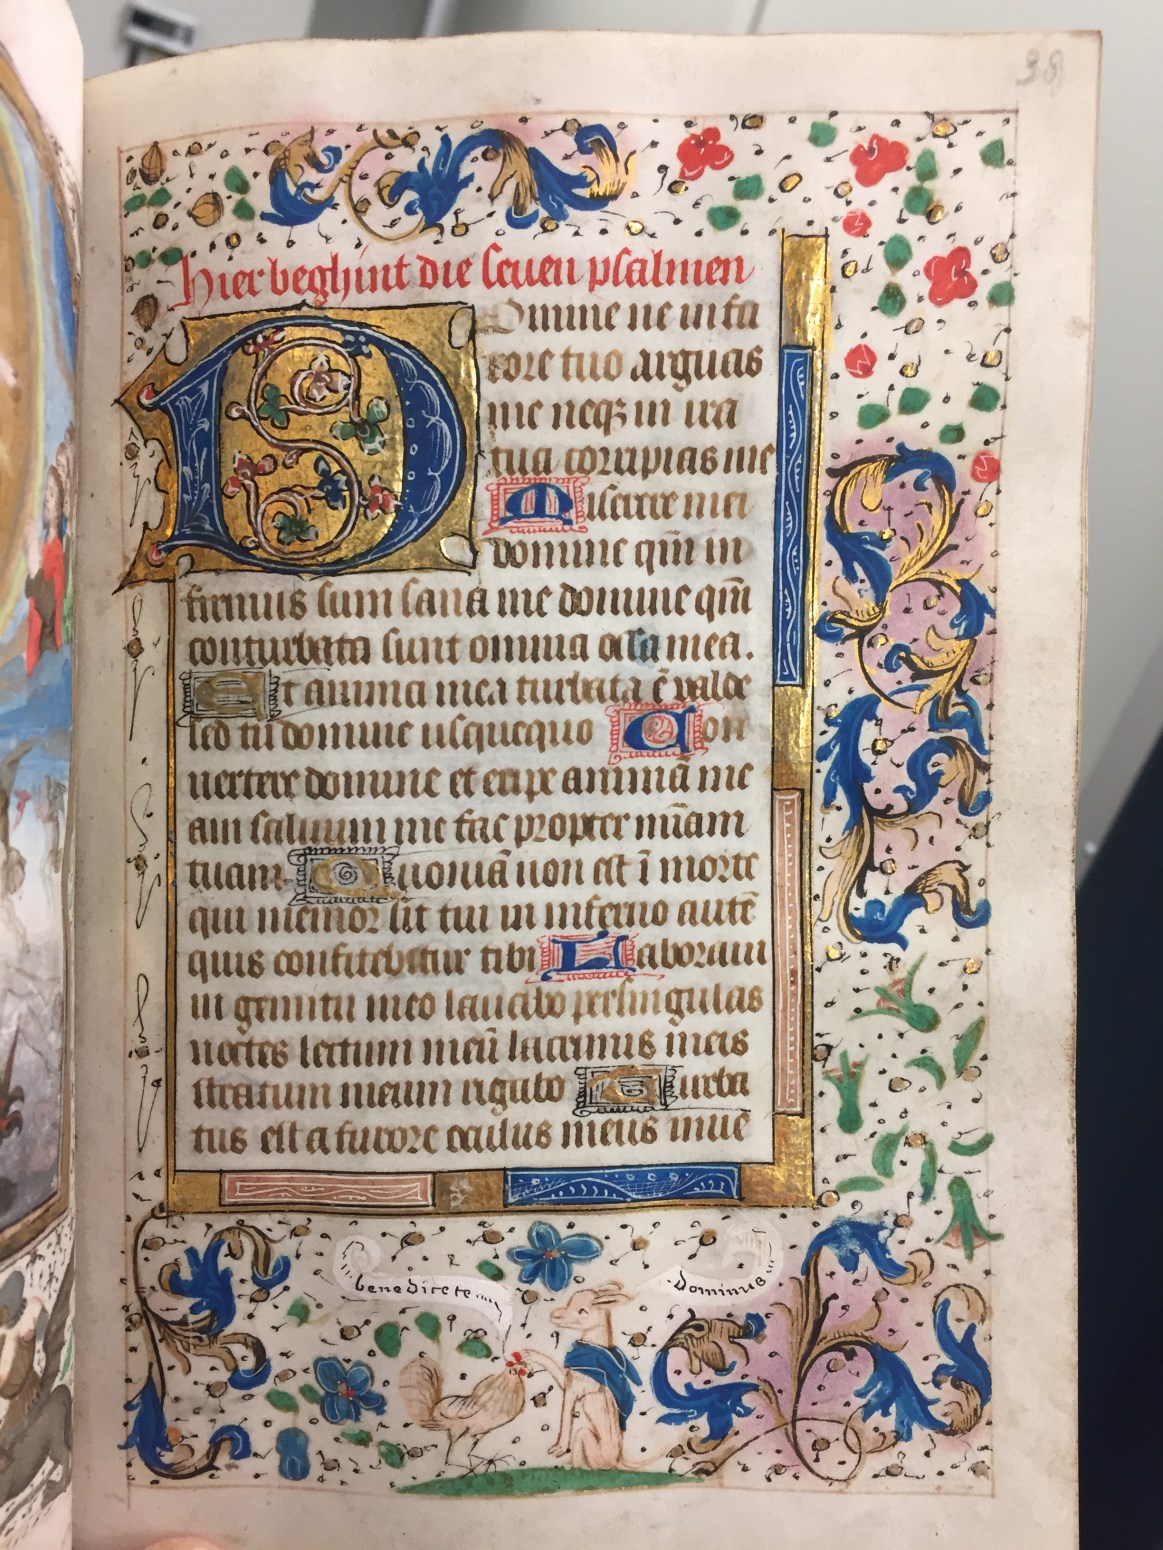 38
Hier beghint die seuen psalmen
Domine ne in fu
rore tuo arguas
me neqꝫ in ira
tua corripias me
Miserere mei
domine qm̄ in
firmus sum sana me domine qm̄
conturbata sunt omnia ossa mea.
Et anima mea turbata ē valde
sed tu domine usquequo Con
uertere domine et eripe animā me
am saluum me fac propter mīam
tuam Quoniā non est ī morte
qui memor sit tui in inferno autē
quis confitebitur tibi Laboraui
in gemitu meo lauabo per singulas
noctes lectum meū lacrimis meis
stratum meum rigabo Turba
tus est a furore oculus meus inue
benedicete
dominus